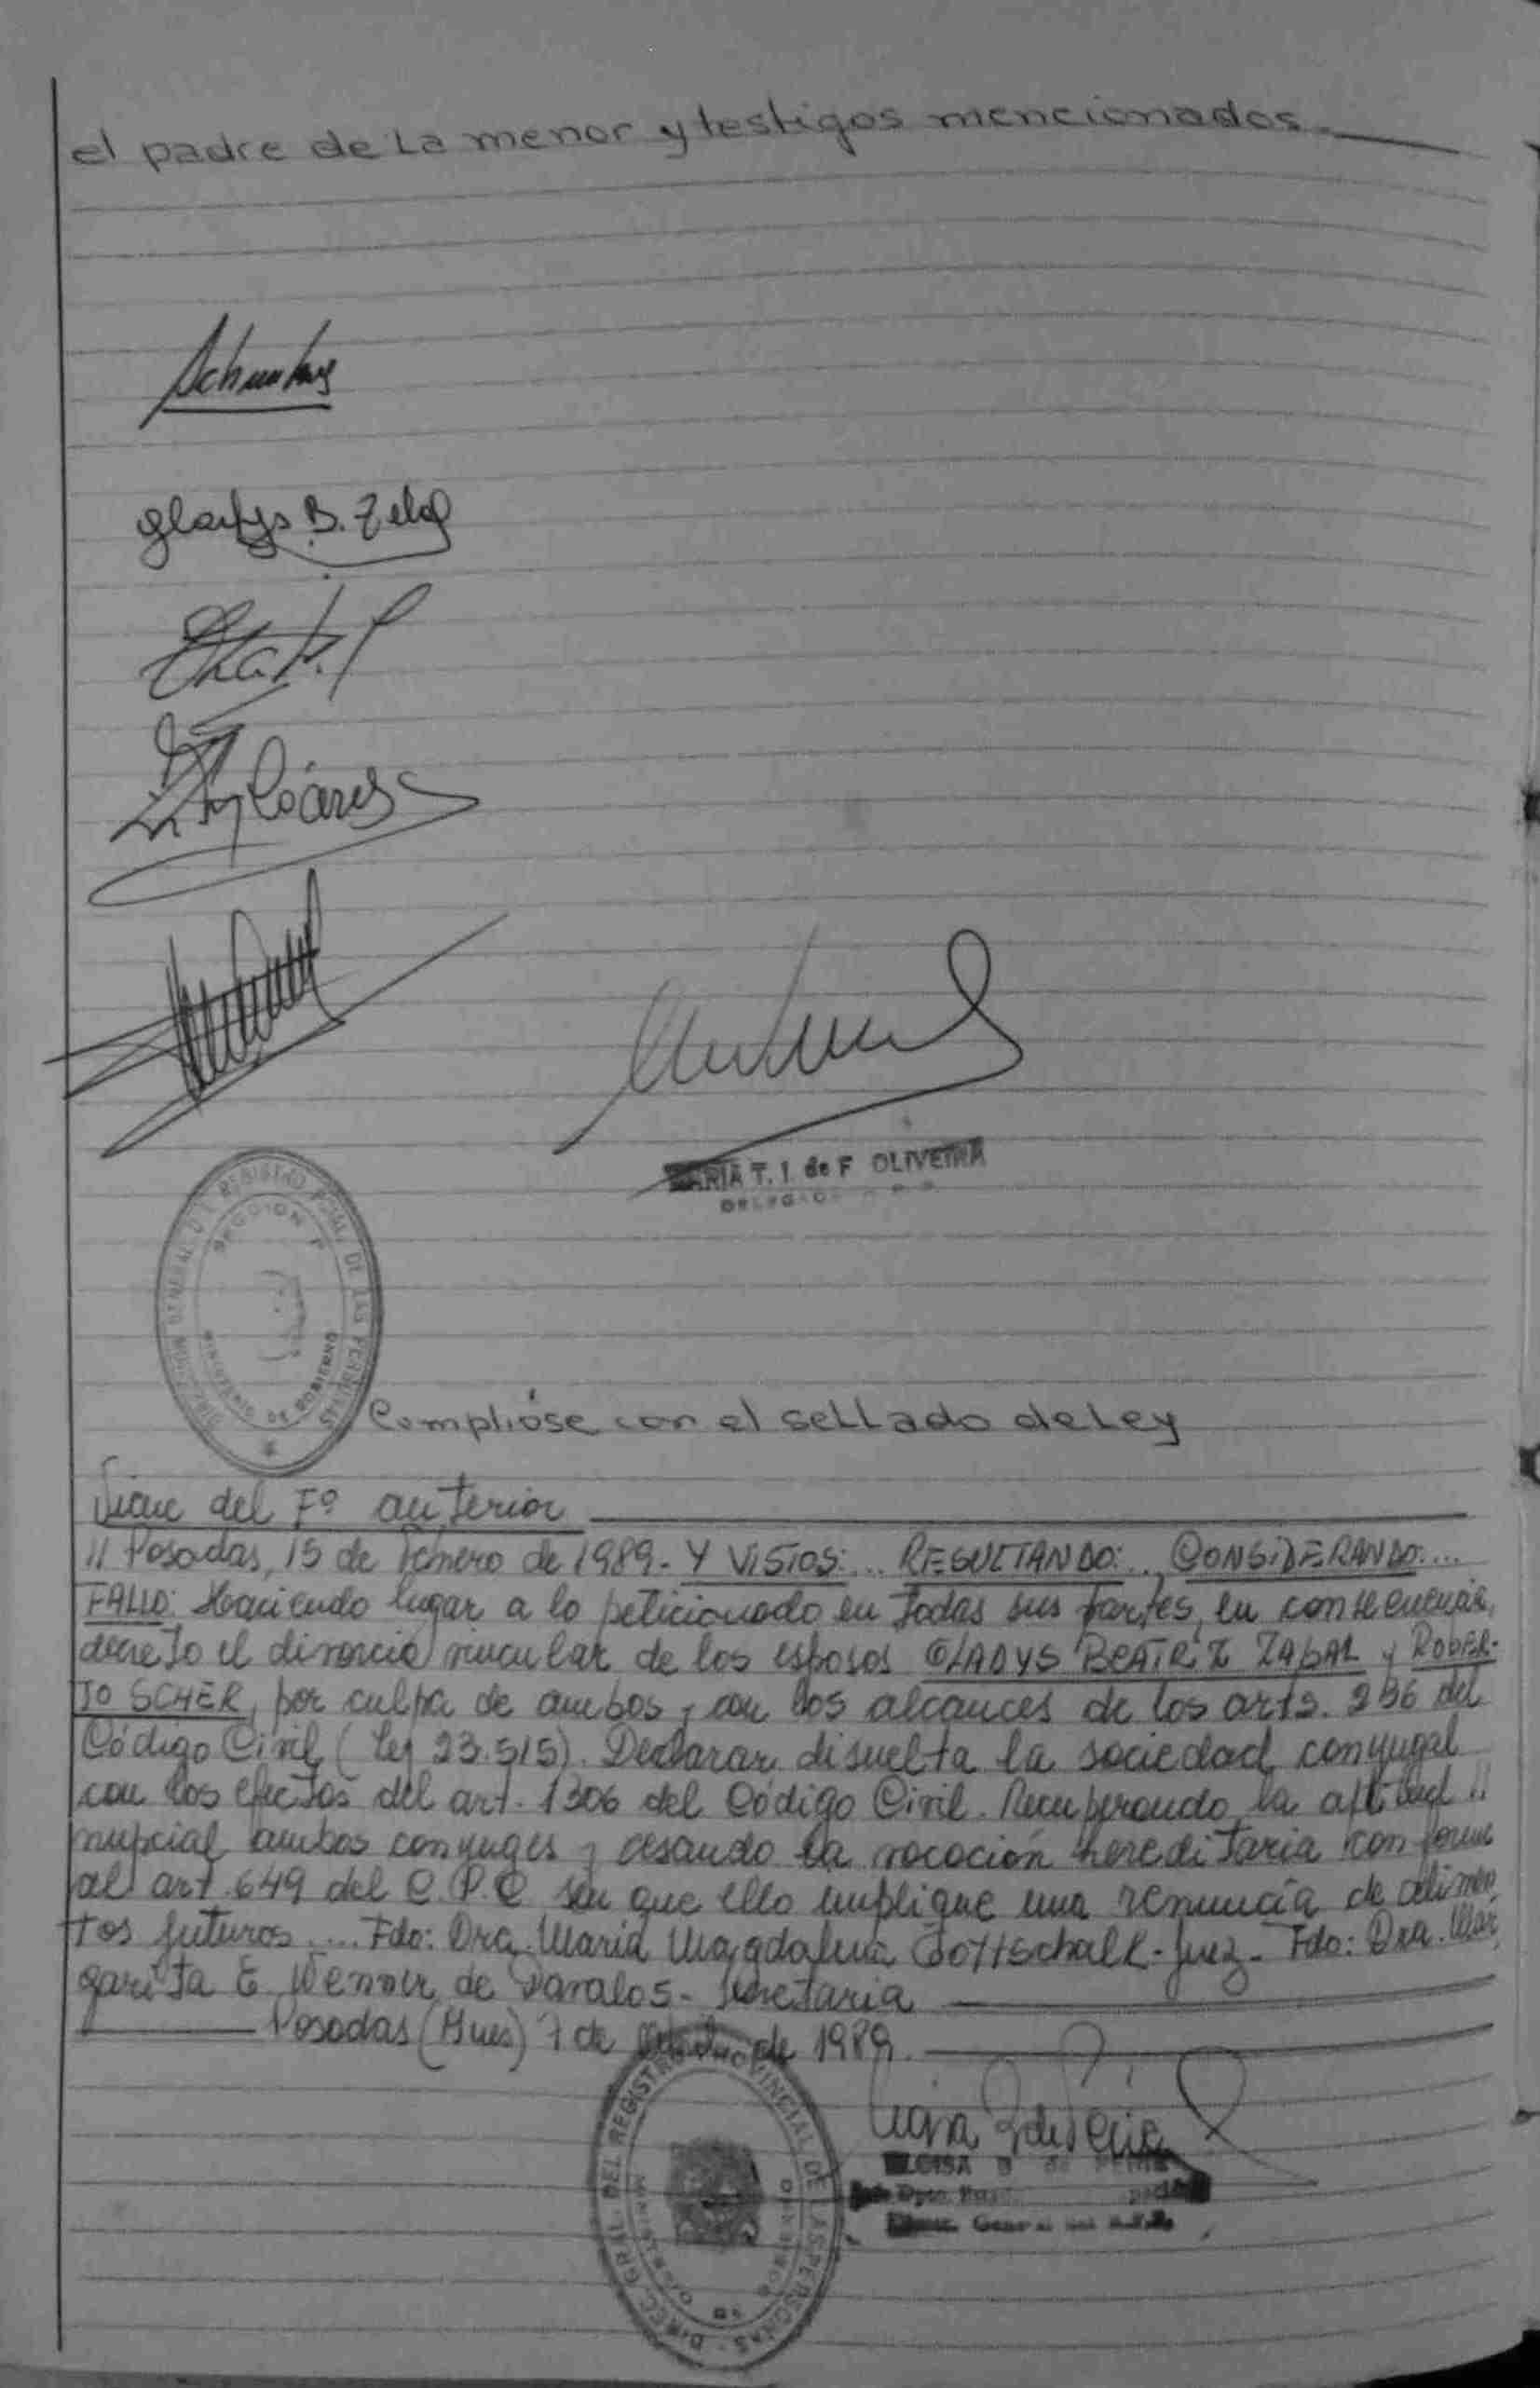 el padre de La menor y testigos mencionados.
Gladys B. Zabal
MARIA T. I. de F. OLIVEIRA
DIRECCION GENERAL DEL REGISTRO PCIAL. DE LAS PERSONAS
SECCION
MINISTERIO DE GOBIERNO
Complióse con el sellado de Ley
Viene del Fº anterior
// Posadas, 15 de Febrero de 1989.- Y VISTOS: ... RESULTANDO: ... CONSIDERANDO: ...
FALLO: Haciendo lugar a lo peticionado en todas sus partes, en consecuencia,
decreto el divorcio vincular de los esposos GLADYS BEATRIZ ZABAL y ROBER-
TO SCHER, por culpa de ambos y con los alcances de los arts. 236 del
Código Civil (Ley 23.515). Declarar disuelta la sociedad conyugal
con los efectos del art. 1306 del Código Civil. Recuperando la aptitud //
nupcial ambos conyuges y cesando la vocación hereditaria conforme
al art. 649 del C.P.C sin que ello implique una renuncia de alimen
tos futuros .... Fdo: Dra. Maria Magdalena Gottschalk - Juez - Fdo: Dra. Mar
garita E. de Davalos - Secretaria
Posadas (Mnes) 7 de de 1989.
DIREC. GRAL. DEL REGISTRO PROVINCIAL DE LAS PERSONAS
MINISTERIO DE GOBIERNO
ELOISA B de
General del R.P.P.